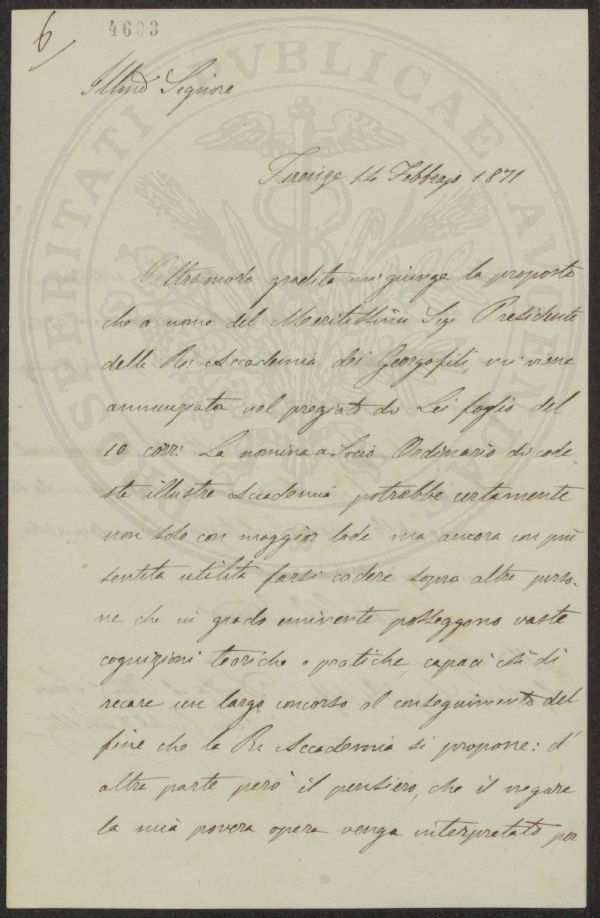 6
4603
Illmo Signore
Firenze 14 Febbrajo 1871
Oltremodo gradita mi giunge la proposta
che a nome del Meritissimo Sig. Presidente
della R. Accademia dei Georgofili, mi viene
annunziata col pregiato di Lei foglio del
10 corr: La nomina a Socio Ordinario di code-
sta illustre Accademia potrebbe certamente
non solo con maggior lode ma ancora con più
sentita utilità farsi cadere sopra altre perso-
ne che in grado eminente posseggono vaste
cognizioni teoriche e pratiche, capaci così di
recare un largo concorso al conseguimento del
fine che la R. Accademia si propone: d'
altra parte però il pensiero, che il negare
la mia povera opera venga interpretato per
PROSPERITATI PVBLICAE AVGENDAE